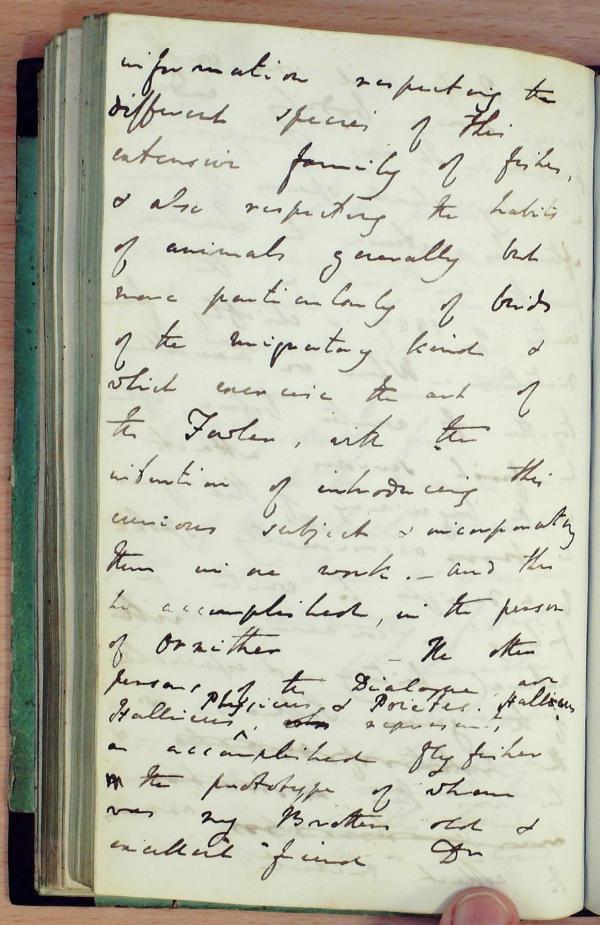 information respecting the
different species of this
extensive family of fishes,
& also respecting the habits
of animals generally but
more particularly of birds
of the migratory kind &
which exercise the art of
the Fowler, with the
intention of introducing this
curious subject & incorporating
them in one work. – and this
he accomplished, in the person
of Ornither – The other
persons of the Dialogue are
Physicus & Poietes. Halieus
Hallieus, represents
an accomplished fly fisher
the prototype of whom
was my Brothers old &
excellent friend Dr